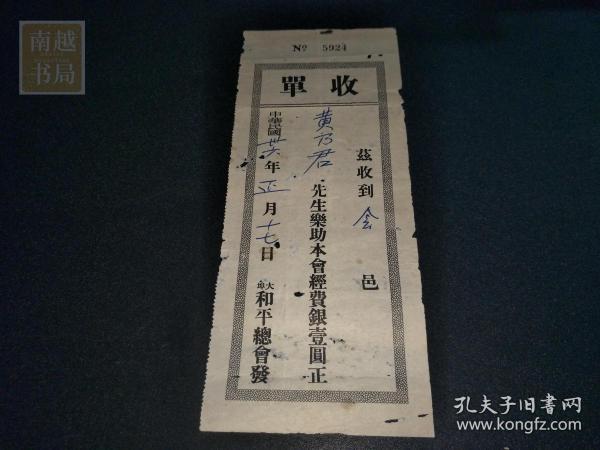 南越
书局
№ 5924
收單
茲收到 会 邑
黄乃君 先生樂助本會經費銀壹圓正
中華民國 廿六 年 正 月 十七 日
大埠和平總會發
孔夫子旧书网
www.kongfz.com